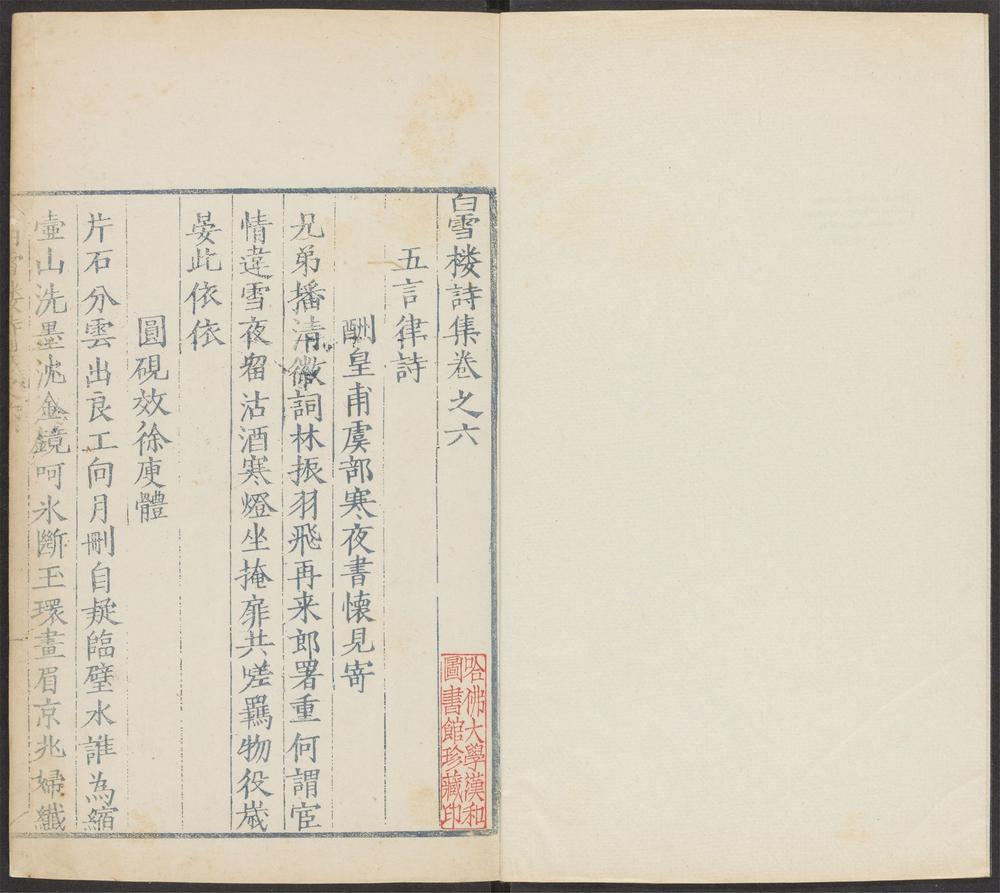 白雪樓詩集卷之六
哈佛大學漢和
圖書館珍藏印
五言律詩
酬皇甫虞部寒夜書懷見寄
兄弟播清徽詞林振羽飛再来郎署重何謂宦
情違雪夜畱沽酒寒燈坐掩扉共嗟羈物役歲
晏此依依
圓硯效徐庾體
片石分雲出良工向月刪自疑臨璧水誰為縮
壷山洗墨沈金鏡呵氷斷玉環畫眉京兆婦纖